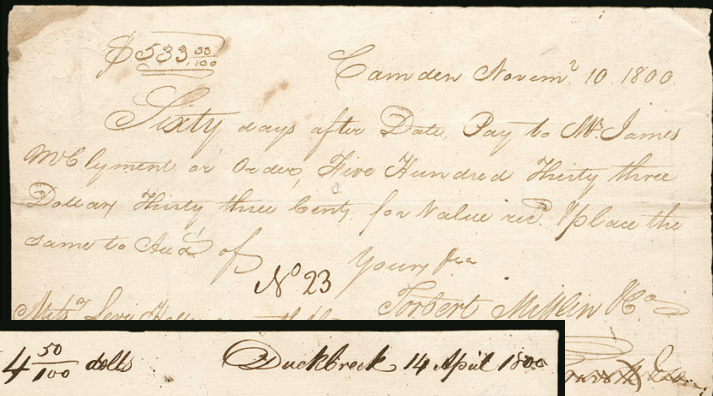 $533 33/100
Camden Novemr. 10. 1800
Sixty days after Date, Pay to Mr. James
McClyment or Order, Five Hundred Thirty three
Dollars Thirty three Cents, for Value recd. & place the
same to Acct. of
Yours &ca
No 23
Torbert Mifflin & Co
Levi
4 50/100 dolls Duckbreek 14 April 1800